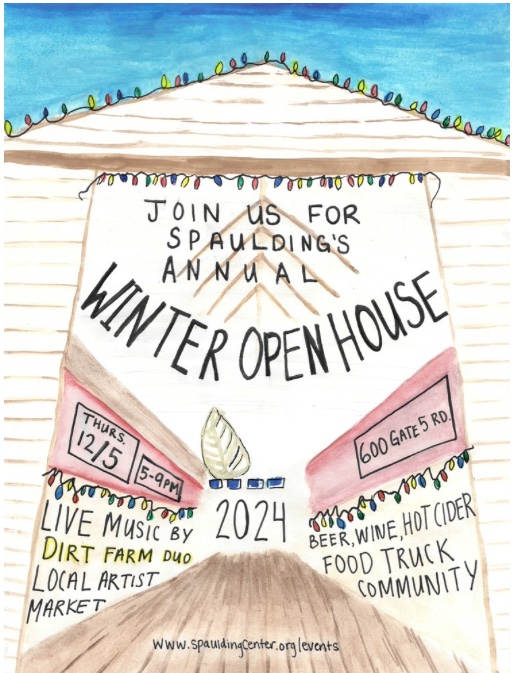 JOIN US FOR
SPAULDING'S
ANNUAL
WINTER OPEN HOUSE
THURS.
12/5
5-9PM
600 GATE 5 RD.
2024
LIVE MUSIC BY
DIRT FARM DUO
LOCAL ARTIST
MARKET
BEER, WINE, HOT CIDER
FOOD TRUCK
COMMUNITY
www.spauldingcenter.org/events